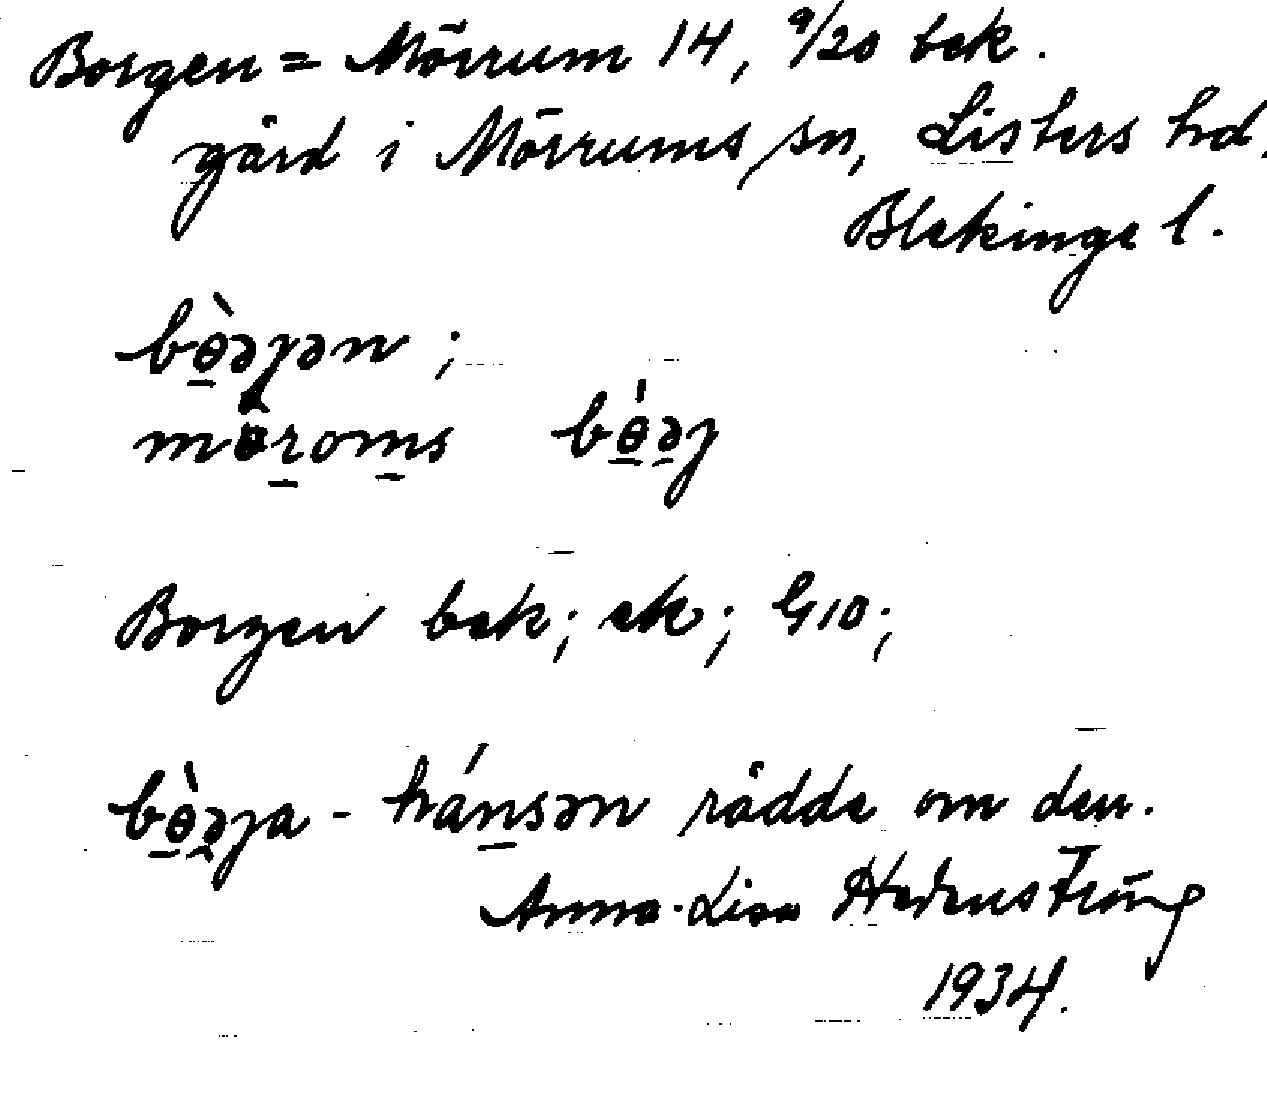 Borgen = Mörrum 14, 9/20 bek.
gård i Mörrums sn, Listers hd.
Blekinge l.
bɵ̀əɟən ;
mɵroms bɵ́əɟ
Borgen bek; ek; G10;
bɵ̀əɟa - hánsən rådde om den.
Anna-Lisa Hedenström
1934.